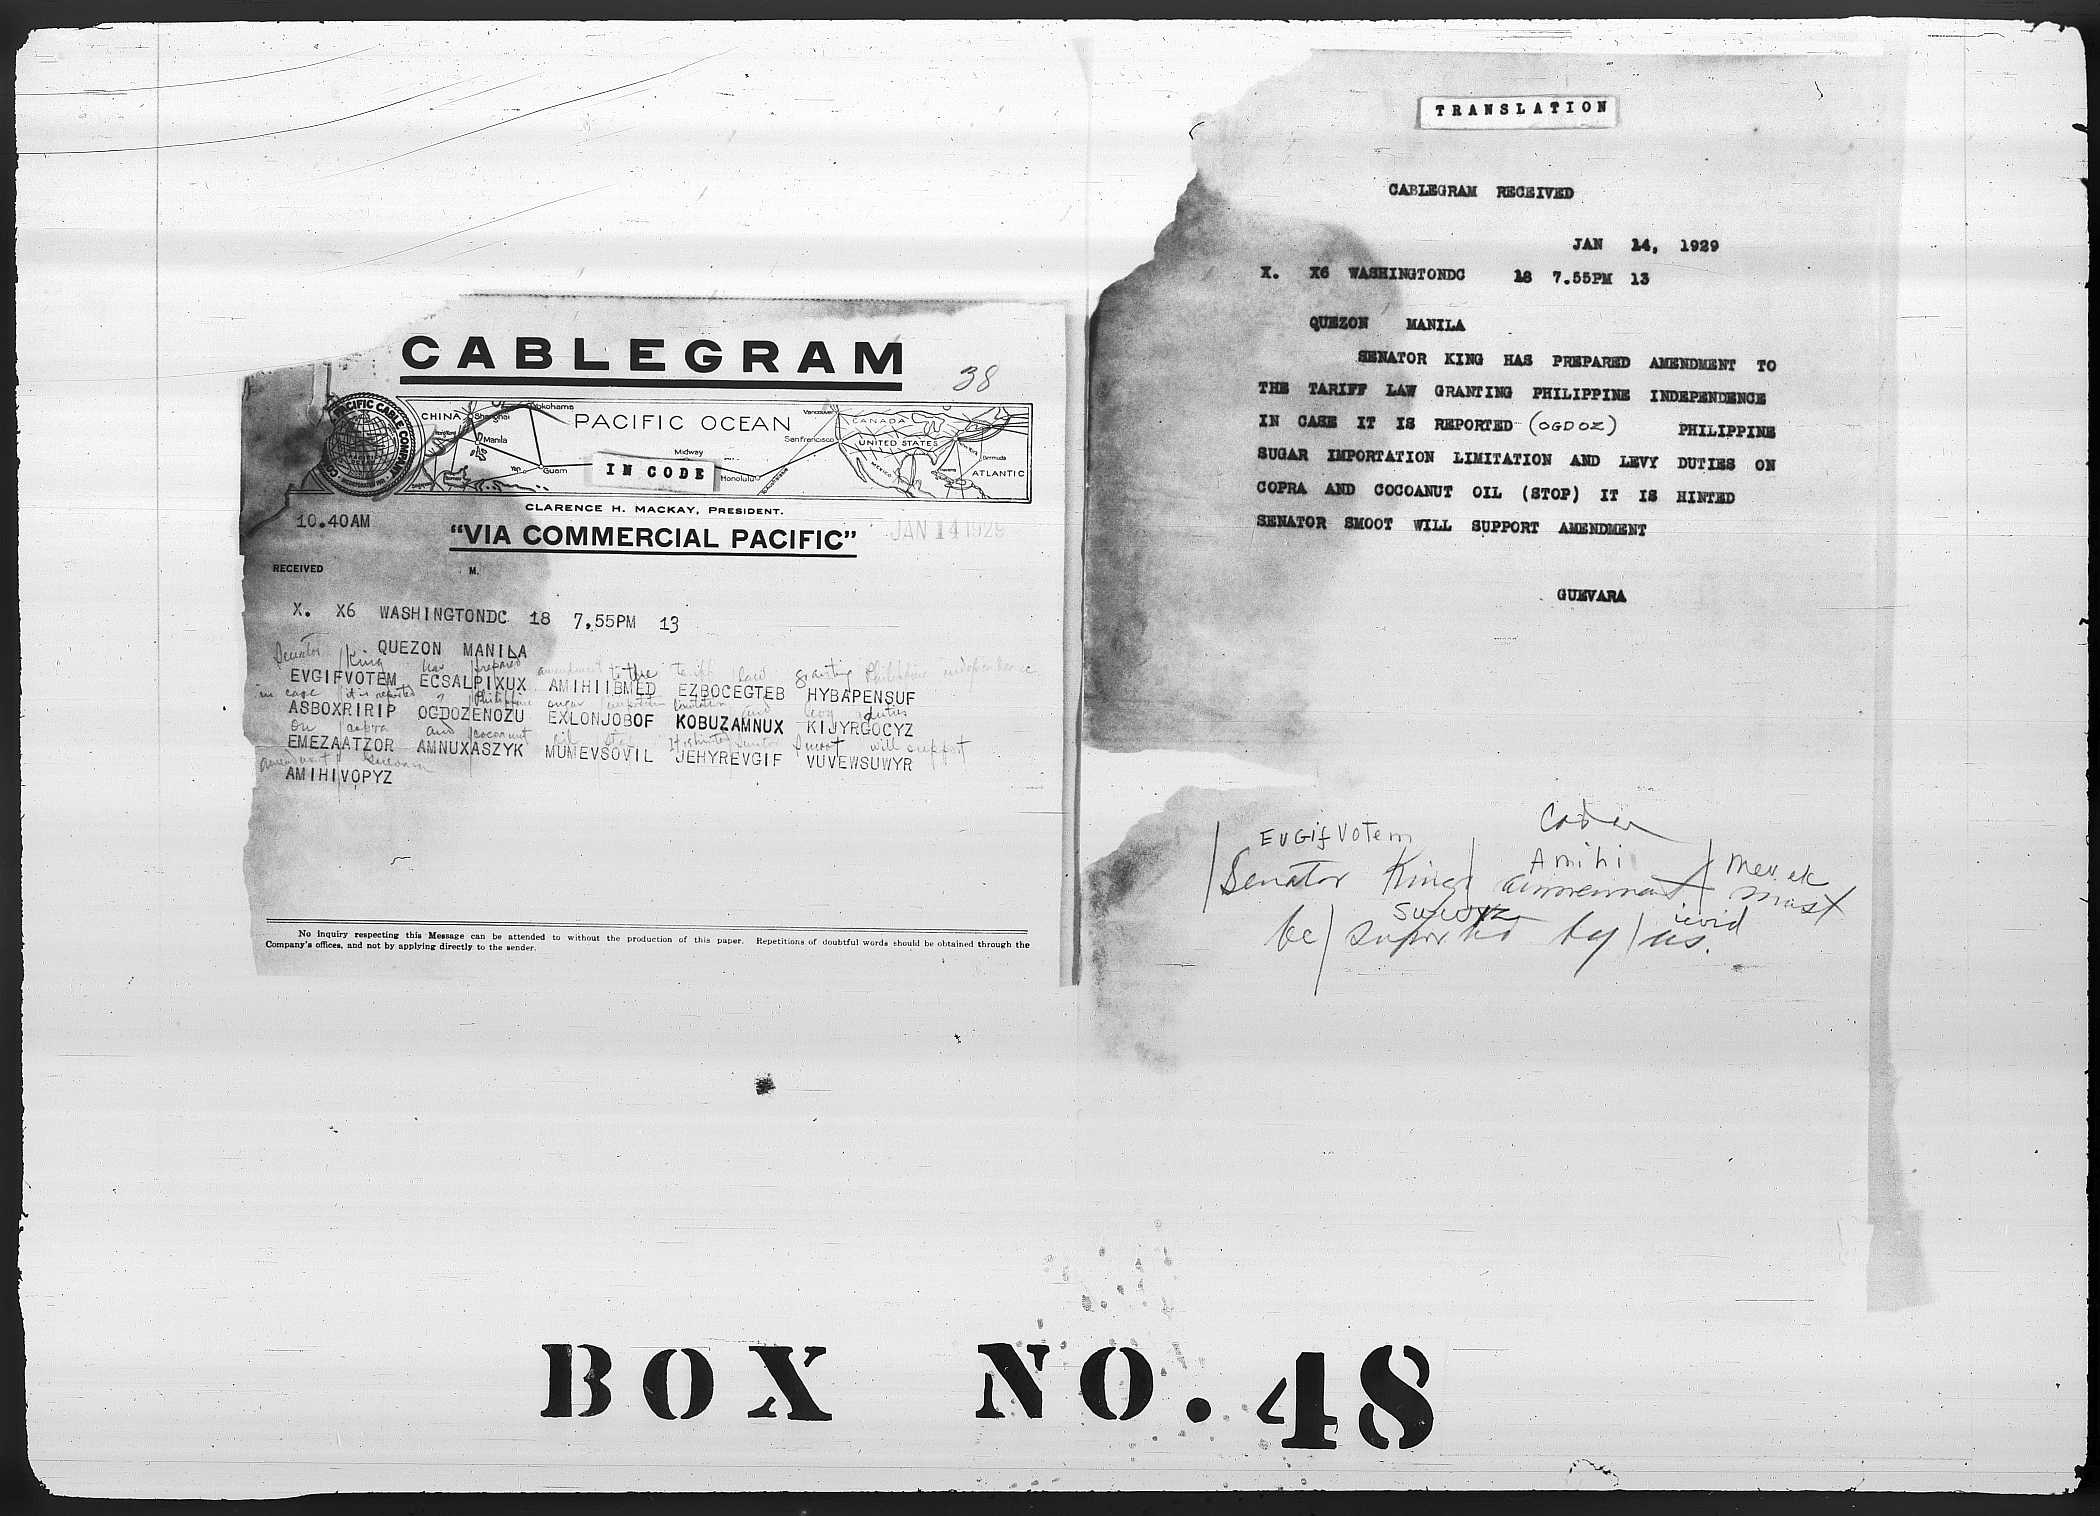 CABLEGRAM
38
COMMERCIAL PACIFIC CABLE COMPANY
INCORPORATED
CHINA
Shanghai
Yokohama
PACIFIC OCEAN
Vancouver
CANADA
San Francisco
UNITED STATES
Manila
Midway
Bermuda
MEXICO
Yap
Guam
IN CODE
Honolulu
ATLANTIC
CLARENCE H. MACKAY, PRESIDENT.
10.40AM
"VIA COMMERCIAL PACIFIC"
JAN 14 1929
RECEIVED
M.
X. X6 WASHINGTONDC 18 7,55PM 13
QUEZON MANILA
Senator / King has / prepared amendment to the tariff law granting Philippine independence
EVGIFVOTEM ECSALPIXUX AMIHIIBMED EZBOCEGTEB HYBAPENSUF
in case / it is reported ? / Philippine sugar importation limitation and levy duties
ASBOXRIRIP OGDOZENOZU EXLONJOBOF KOBUZAMNUX KIJYRGOCYZ
on / copra and / cocoanut oil / stop It is hinted Senator Smoot will support
EMEZAATZOR AMNUXASZYK MUMEVSOVIL JEHYREVGIF VUVEWSUWYR
amendment / Guevara
AMIHIVOPYZ
No inquiry respecting this Message can be attended to without the production of this paper. Repetitions of doubtful words should be obtained through the
Company's offices, and not by applying directly to the sender.
TRANSLATION
CABLEGRAM RECEIVED
JAN 14, 1929
X. X6 WASHINGTONDC 18 7.55PM 13
QUEZON MANILA
SENATOR KING HAS PREPARED AMENDMENT TO
THE TARIFF LAW GRANTING PHILIPPINE INDEPENDENCE
IN CASE IT IS REPORTED (OGDOZ) PHILIPPINE
SUGAR IMPORTATION LIMITATION AND LEVY DUTIES ON
COPRA AND COCOANUT OIL (STOP) IT IS HINTED
SENATOR SMOOT WILL SUPPORT AMENDMENT
GUEVARA
EvGif Votem Amihi Mevek
Senator King must
be / suported by / us.
BOX NO. 48